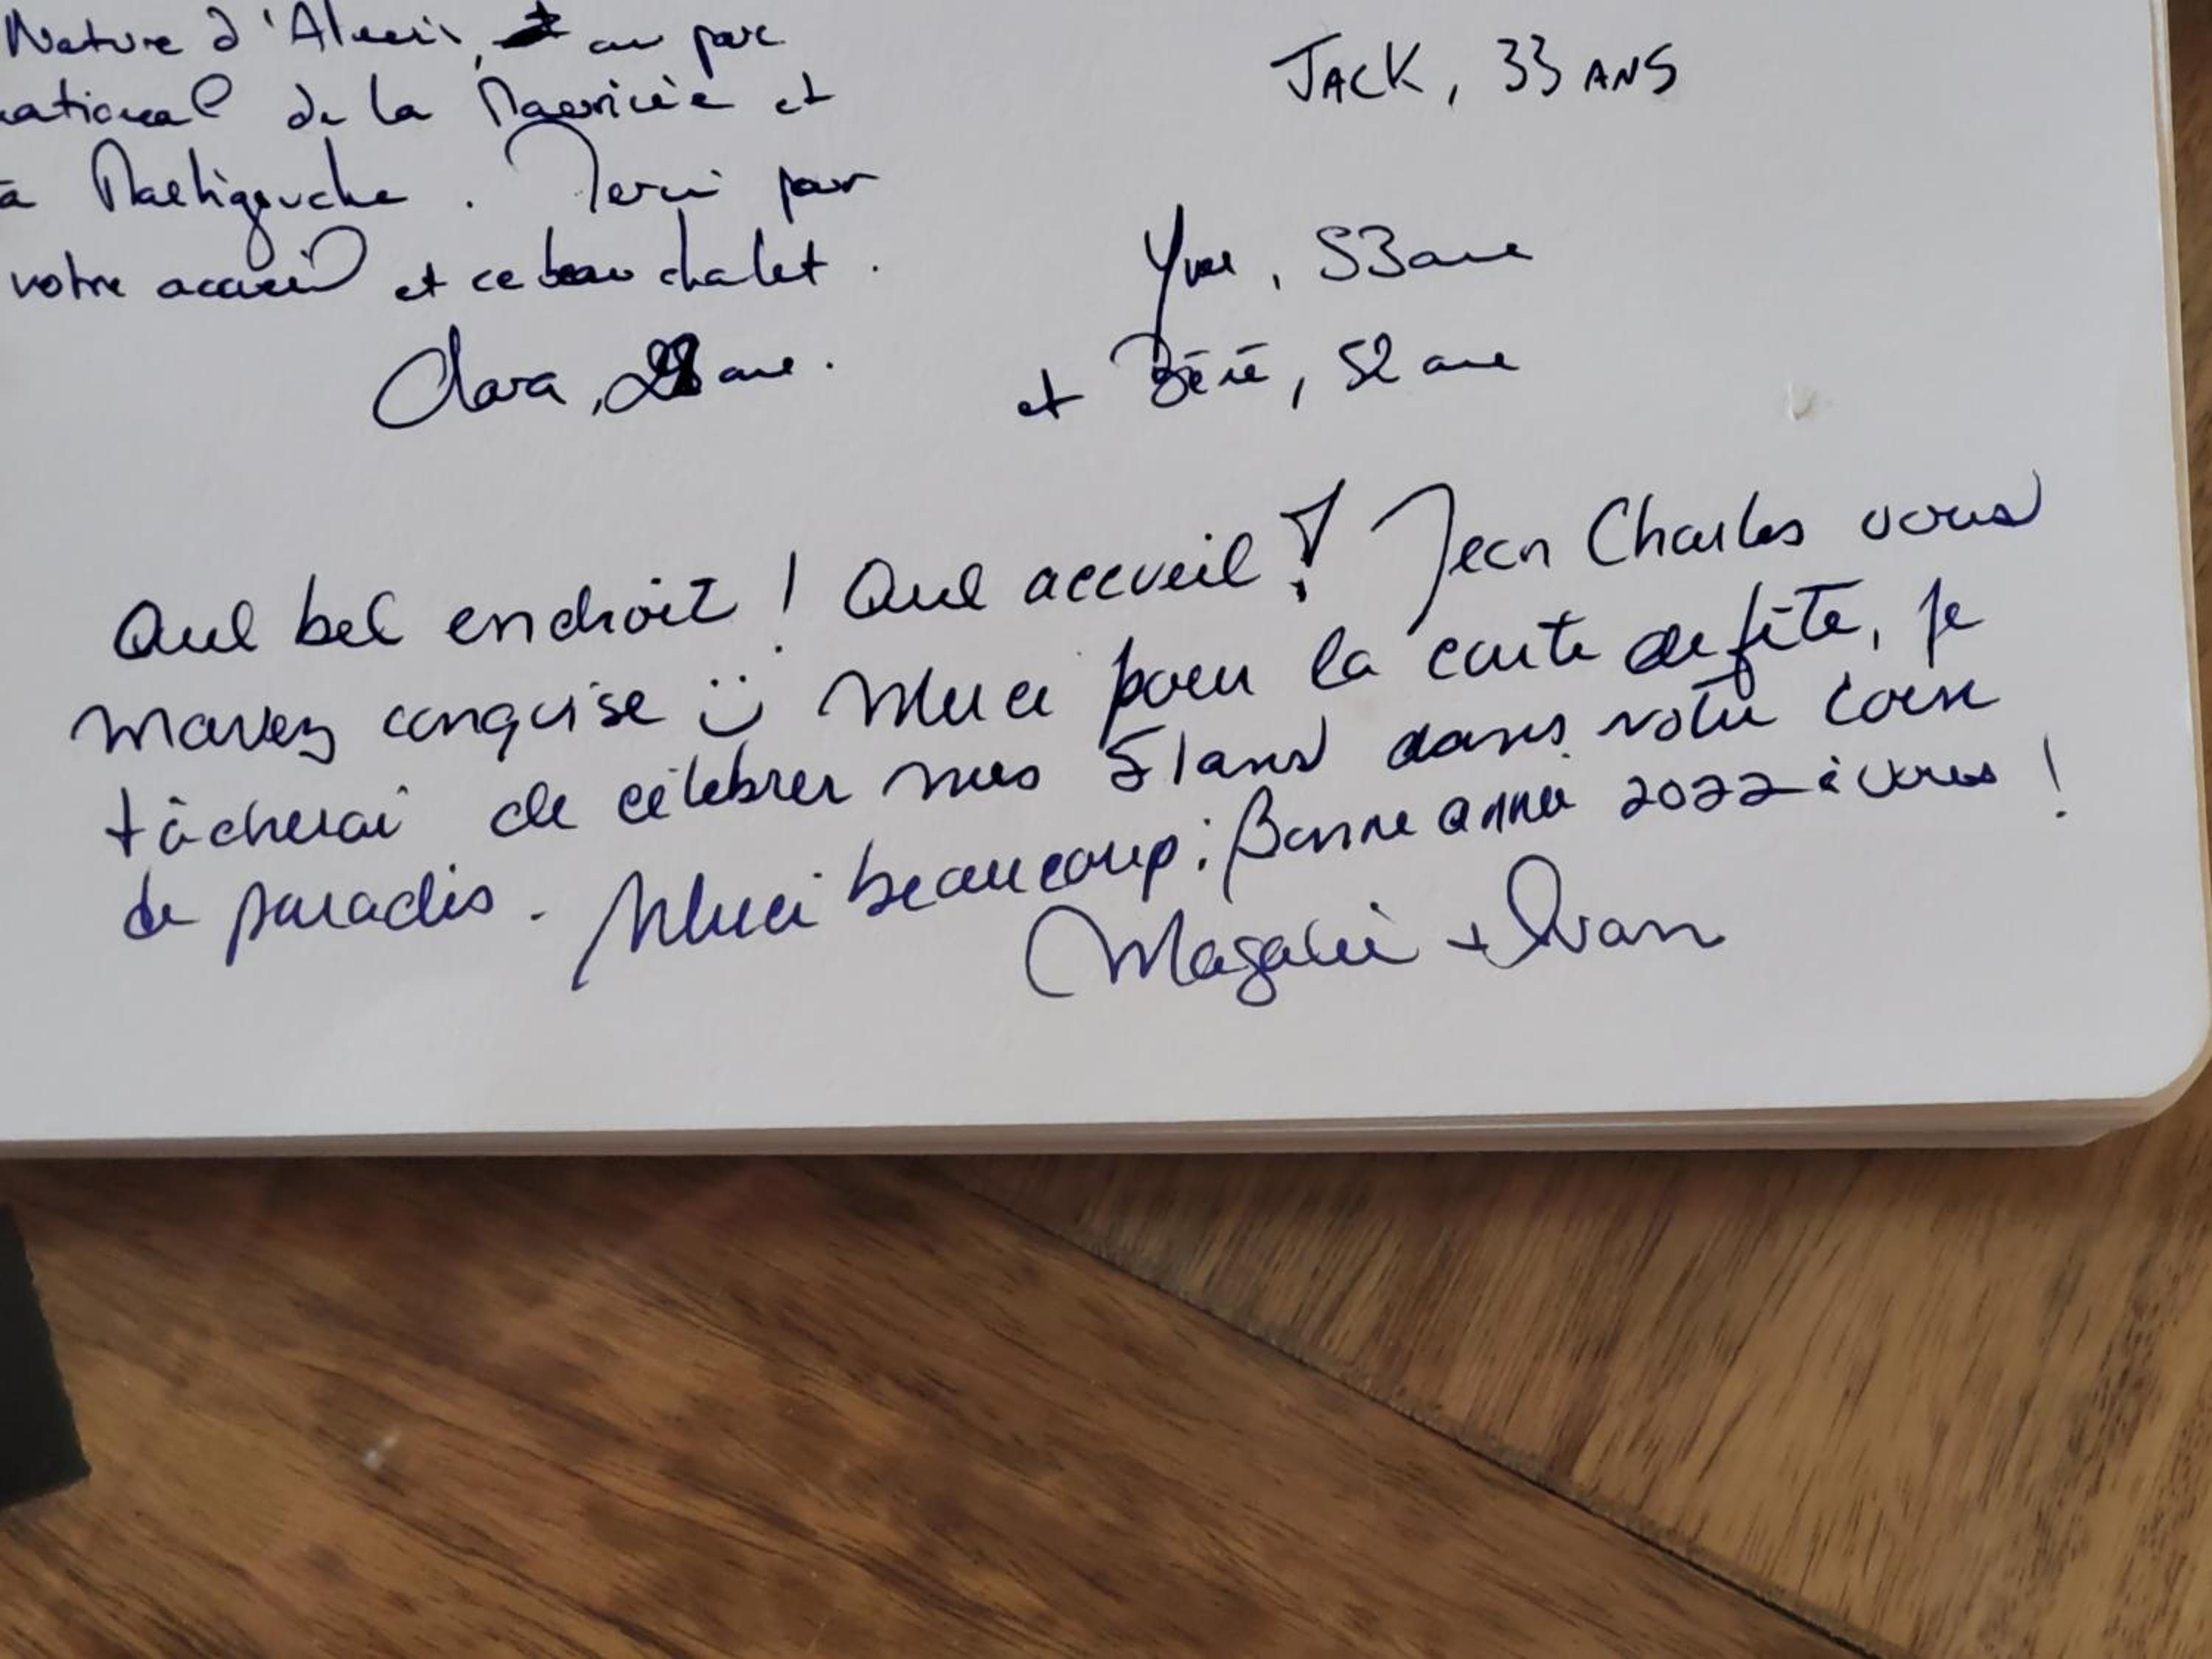 Nature d'Alexis, au parc
national de la Mauricie et
à Mastigouche. Merci pour
votre accueil et ce beau chalet.
Clara, ans.
JACK, 33 ANS
Yves, 53 ans
et Béné, 52 ans
Quel bel endroit ! Quel accueil ! Jean Charles vous
m'avez conquise Merci pour la carte de fête, je
tâcherai de célébrer mes 51 ans dans votre coin
de paradis. Merci beaucoup : Bonne année 2022 à vous !
Magalie + Ivan